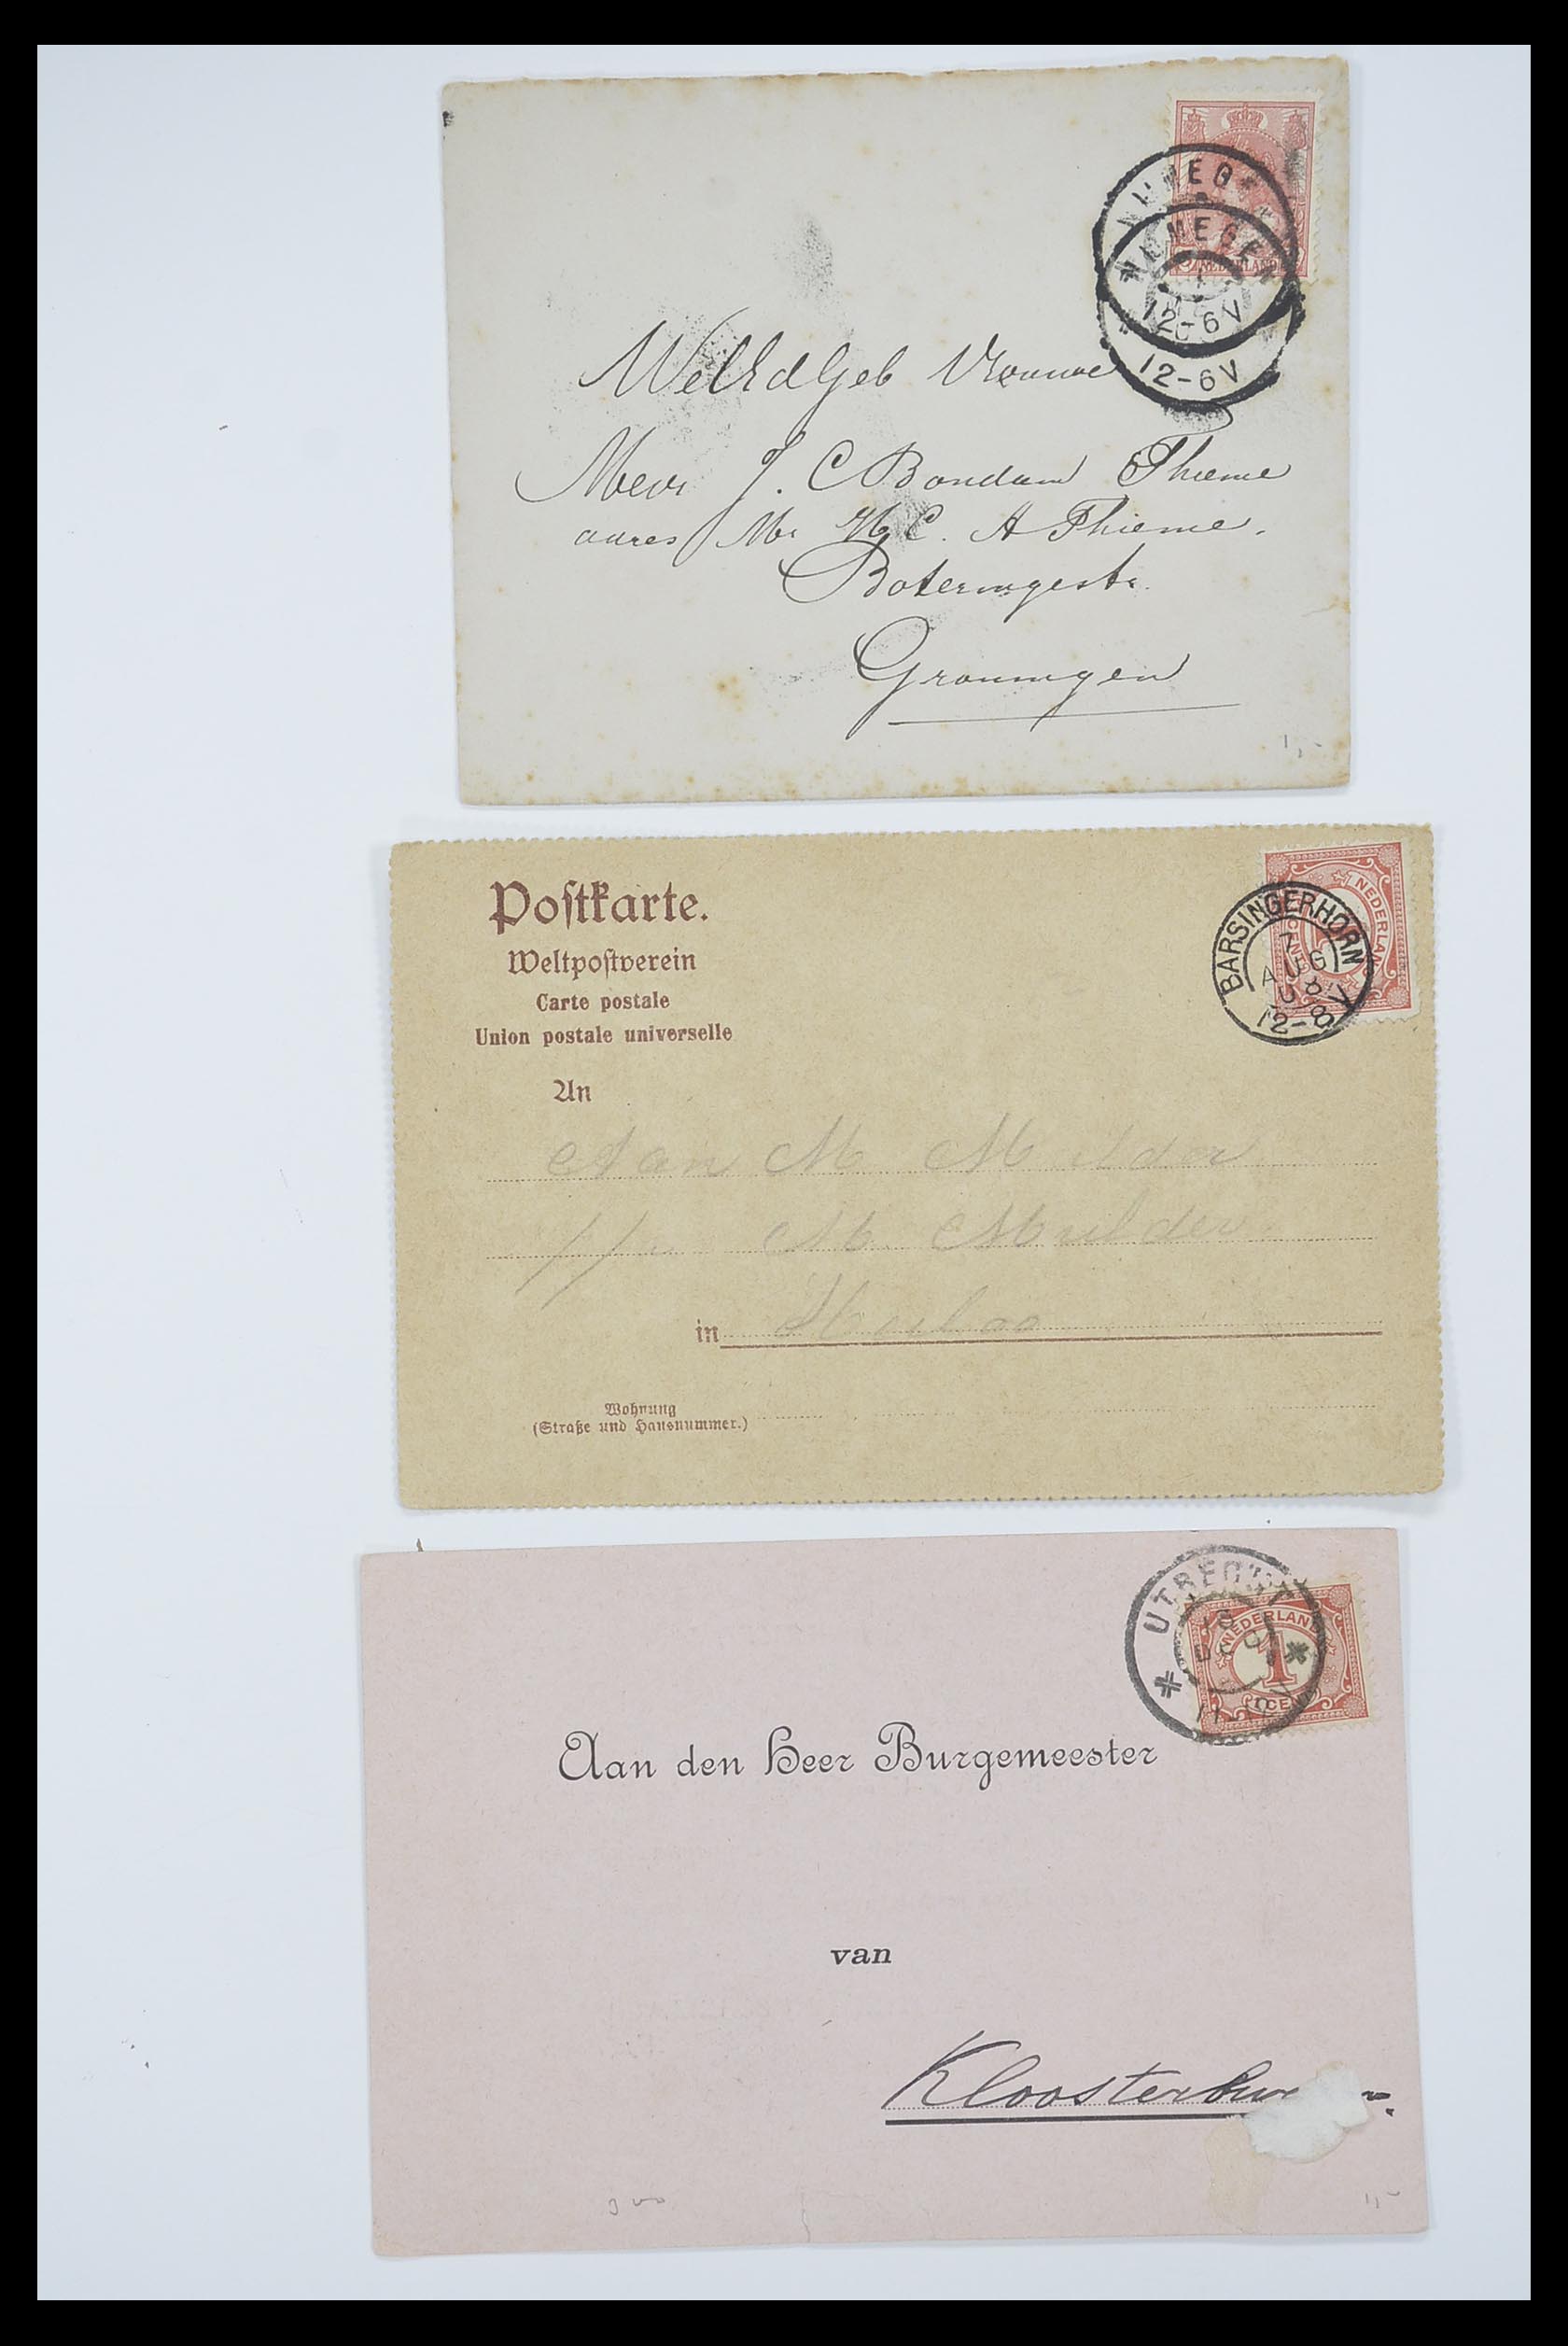 NIJMEGEN
12-6V
NEDERLAND
WelEdGeb Vrouwe
Mevr J. C Bondam Thieme
adres Mr H. C. A Thieme.
Boteringestr.
Groningen
1,-
Postkarte.
Weltpostverein
Carte postale
Union postale universelle
NEDERLAND
CENT
BARSINGERHORN
7
AUG
08
12-8V
An
Aan M Mulder
p/a M. Mulder
in
Wohnung
(Straße und Hausnummer.)
UTRECHT
DEC
NEDERLAND
1
CENT
Aan den Heer Burgemeester
van
Kloosterbur
1,-